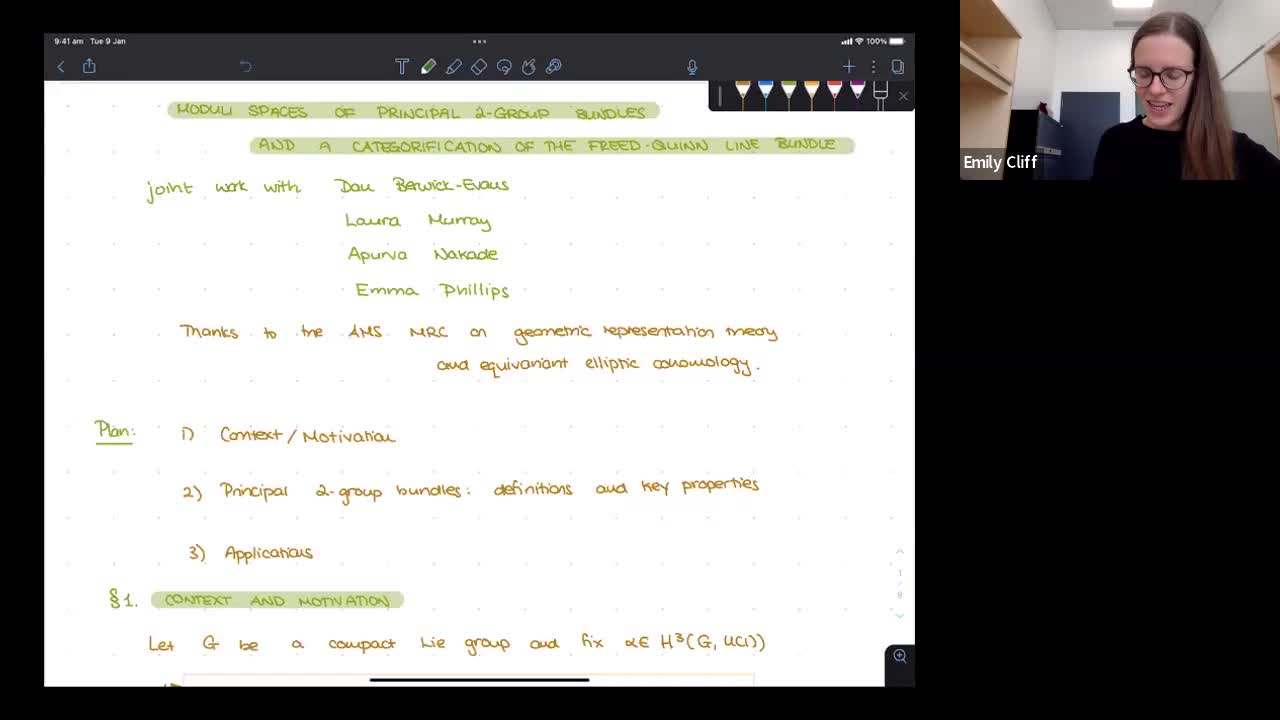 9:41 am Tue 9 Jan
100%
MODULI SPACES OF PRINCIPAL 2-GROUP BUNDLES
AND A CATEGORIFICATION OF THE FREED-QUINN LINE BUNDLE
joint work with Dan Berwick-Evans
Laura Murray
Apurva Nakade
Emma Phillips
Thanks to the AMS MRC on geometric representation theory
and equivariant elliptic cohomology.
Plan: 1) Context/Motivation
2) Principal 2-group bundles: definitions and key properties
3) Applications
§1. CONTEXT AND MOTIVATION
Let G be a compact Lie group and fix α∈ H³(G, U(1))
1
/
8
Emily Cliff